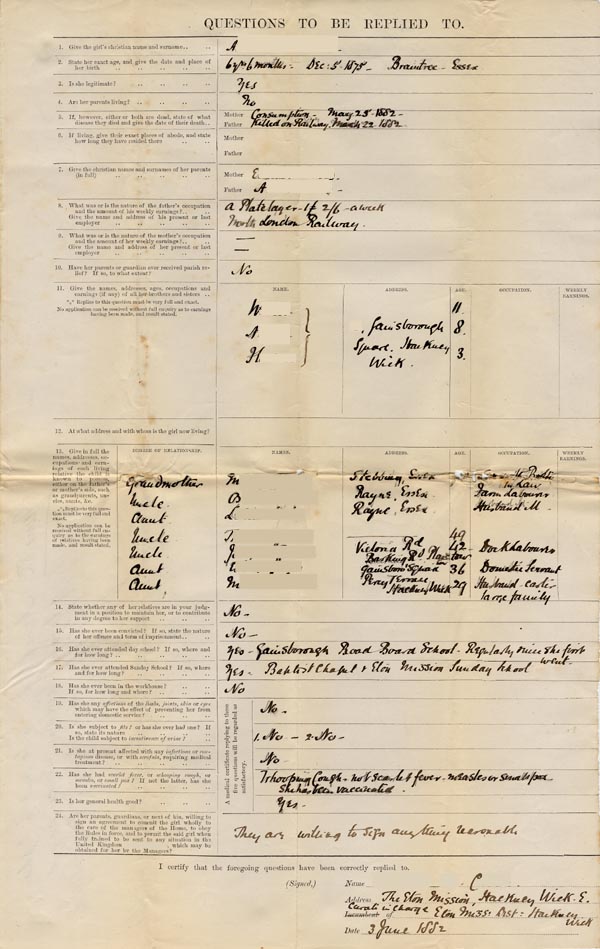 QUESTIONS TO BE REPLIED TO.
1. Give the girl's christian name and surname .. ..
A
2. State her exact age, and give the date and place of her birth .. .. .. .. ..
6 yrs 6 months - Dec: 5th 1875 - Braintree - Essex
3. Is she legitimate? .. .. .. ..
Yes
4. Are her parents living? .. .. .. ..
No
5. If, however, either or both are dead, state of what disease they died and give the date of their death ..
Mother Consumption - May 25th 1882 -
Father Killed on Railway, March 22 1882
6. If living, give their exact places of abode, and state how long they have resided there .. ..
Mother
Father
7. Give the christian names and surnames of her parents (in full) .. .. .. .. ..
Mother E
Father A
8. What was or is the nature of the father's occupation and the amount of his weekly earnings? ..
Give the name and address of his present or last employer .. .. .. .. ..
a Platelayer - 17 2/6 - a week
North London Railway.
9. What was or is the nature of the mother's occupation and the amount of her weekly earnings? ..
Give name and address of her present or last employer .. .. .. .. ..
—
—
10. Have her parents or guardian ever received parish relief? If so, to what extent? .. .. ..
No
11. Give the names, addresses, ages, occupations and earnings (if any) of all her brothers and sisters ..
Replies to this question must be very full and exact.
No application can be received without full enquiry as to earnings having been made, and result stated.
NAME. ADDRESS. AGE. OCCUPATION. WEEKLY EARNINGS.
W 11
A Gainsborough 8
H Square, Hackney 3
Wick.
12. At what address and with whom is the girl now living?
13. Give in full the names, addresses, occupations and earnings of each living relative the child is known to possess, either on the father's or mother's side, such as grandparents, uncles, aunts, &c.
Replies to this question must be very full and exact.
No application can be received without full enquiry as to earnings of relatives having been made, and result stated.
DEGREE OF RELATIONSHIP. NAMES. ADDRESS. AGE. OCCUPATION. WEEKLY EARNINGS.
Grandmother M Stebbing, Essex in Law
Uncle B Rayne, Essex Farm Labourer
Aunt L Rayne, Essex Husband M.
Uncle T. 49
Uncle J Victoria Rd Barking Rd Plaistow 42 Dock labourer
Aunt E Gainsboro' Square 36 Domestic Servant
Aunt M Percy Terrace Hackney Wick 29 Husband - carter
large family
14. State whether any of her relatives are in your judgment in a position to maintain her, or to contribute in any degree to her support .. .. ..
No -
15. Has she ever been convicted? If so, state the nature of her offence and term of imprisonment .. ..
No -
16. Has she ever attended day school? If so, where and for how long? .. .. .. ..
Yes - Gainsborough Road Board School. Regularly since she first went -
17. Has she ever attended Sunday School? If so, where and for how long? .. .. .. ..
Yes - Baptist Chapel & Eton Mission Sunday School
18. Has she ever been in the workhouse? .. ..
If so, for how long and where? .. .. ..
No
A medical certificate replying to these five questions will be regarded as satisfactory.
19. Has she any affections of the limbs, joints, skin or eyes which may have the effect of preventing her from entering domestic service? .. ..
No -
20. Is she subject to fits? or has she ever had one? If so, state its nature .. .. ..
Is the child subject to incontinence of urine? ..
1. No - 2. No -
21. Is she at present affected with any infectious or contagious disease, or with scrofula, requiring medical treatment? .. .. .. ..
No -
22. Has she had scarlet fever, or whooping cough, or measles, or small pox? If not the latter, has she been vaccinated? .. .. .. ..
Whooping Cough - not scarlet fever - measles or small pox
She has been vaccinated.
23. Is her general health good? .. .. ..
Yes -
24. Are her parents, guardians, or next of kin, willing to sign an agreement to commit the girl wholly to the care of the managers of the Home, to obey the Rules in force, and to permit the said girl when fully trained to be sent to any situation in the United Kingdom , which may be obtained for her by the Managers? ..
They are willing to sign anything reasonable
I certify that the foregoing questions have been correctly replied to.
(Signed.) Name C
Address The Eton Mission, Hackney Wick. E.
Curate in Charge
Incumbent of Eton Miss: Dist: Hackney Wick
Date 3 June 1882